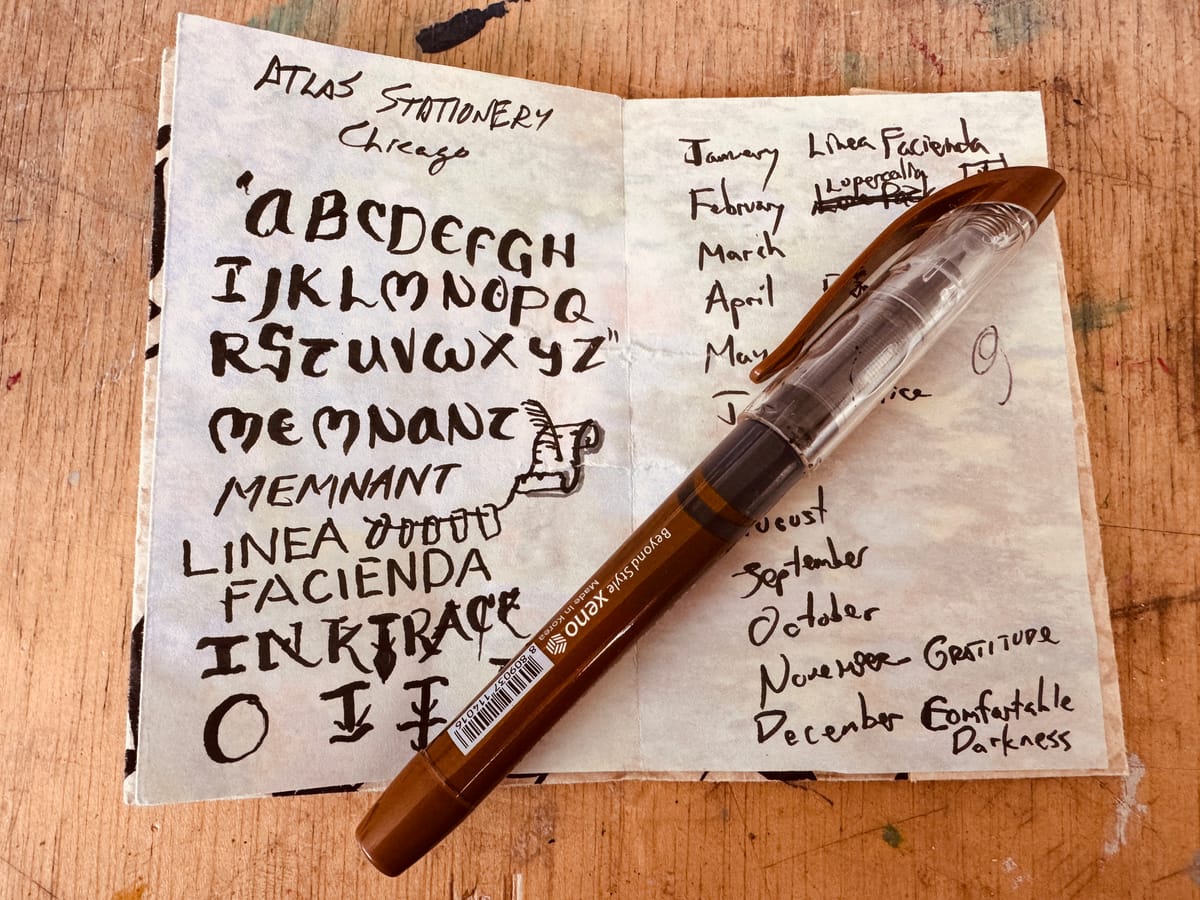 ATLAS STATIONERY
Chicago
"aBCDEFGH
IJKLMNOPQ
RSTUVWXYZ"
MEMNANT
MEMNANT
LINEA
FACIENDA
INKTRACE
O I I
January Linea Facienda
February Lupercalia
March
April
May
J
August
September
October
November GRATITUDE
December Comfortable
Darkness
9
Beyond Style Xeno
Made in Korea
8 809037 114016